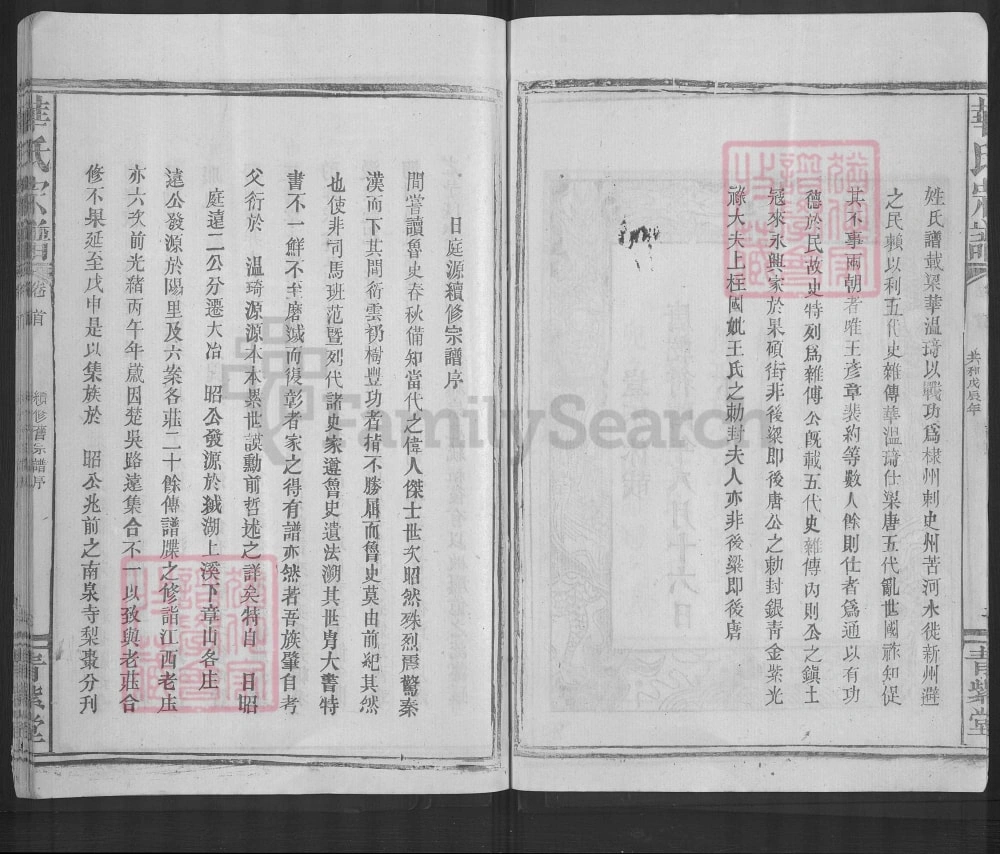 華氏宗譜
共和戊辰年
青紫堂
姓氏譜載梁華温琦以戰功爲棣州刺史州苦河水徙新州避
之民賴以利五代史雜傳華温琦仕梁唐五代亂世國祚知促
其不事兩朝者唯王彥章裴約等數人餘則仕者爲通以有功
德於民故史特列爲雜傳公旣載五代史雜傳內則公之鎭土
冠來永興家於果碩街非後梁即後唐公之勅封銀青金紫光
祿大夫上柱國妣王氏之勅封夫人亦非後梁即後唐
日庭源續修宗譜序
間嘗讀魯史春秋備知當代之偉人傑士世次昭然殊烈震驚秦
漢而下其間衍雲礽樹豐功者猶不勝屈而魯史莫由前紀其然
也使非司馬班范暨列代諸史家遵魯史遺法溯其世胄大書特
書不一鮮不至磨滅而復彰者家之得有譜亦然若吾族肇自考
父衍於 温琦源源本本累世謨勳前哲述之詳矣特自 日昭
庭遠二公分遷大冶 昭公發源於銊湖上溪下章山各庄
遠公發源於陽里及六案各莊二十餘傳譜牒之修詣江西老庄
亦六次前光緒丙午年歲因楚吳路遠集合不一以致與老莊合
修不果延至戊申是以集族於 昭公兆前之南泉寺梨棗分刊
華氏宗譜
卷首
續修譜宗譜序
青紫堂
FamilySearch